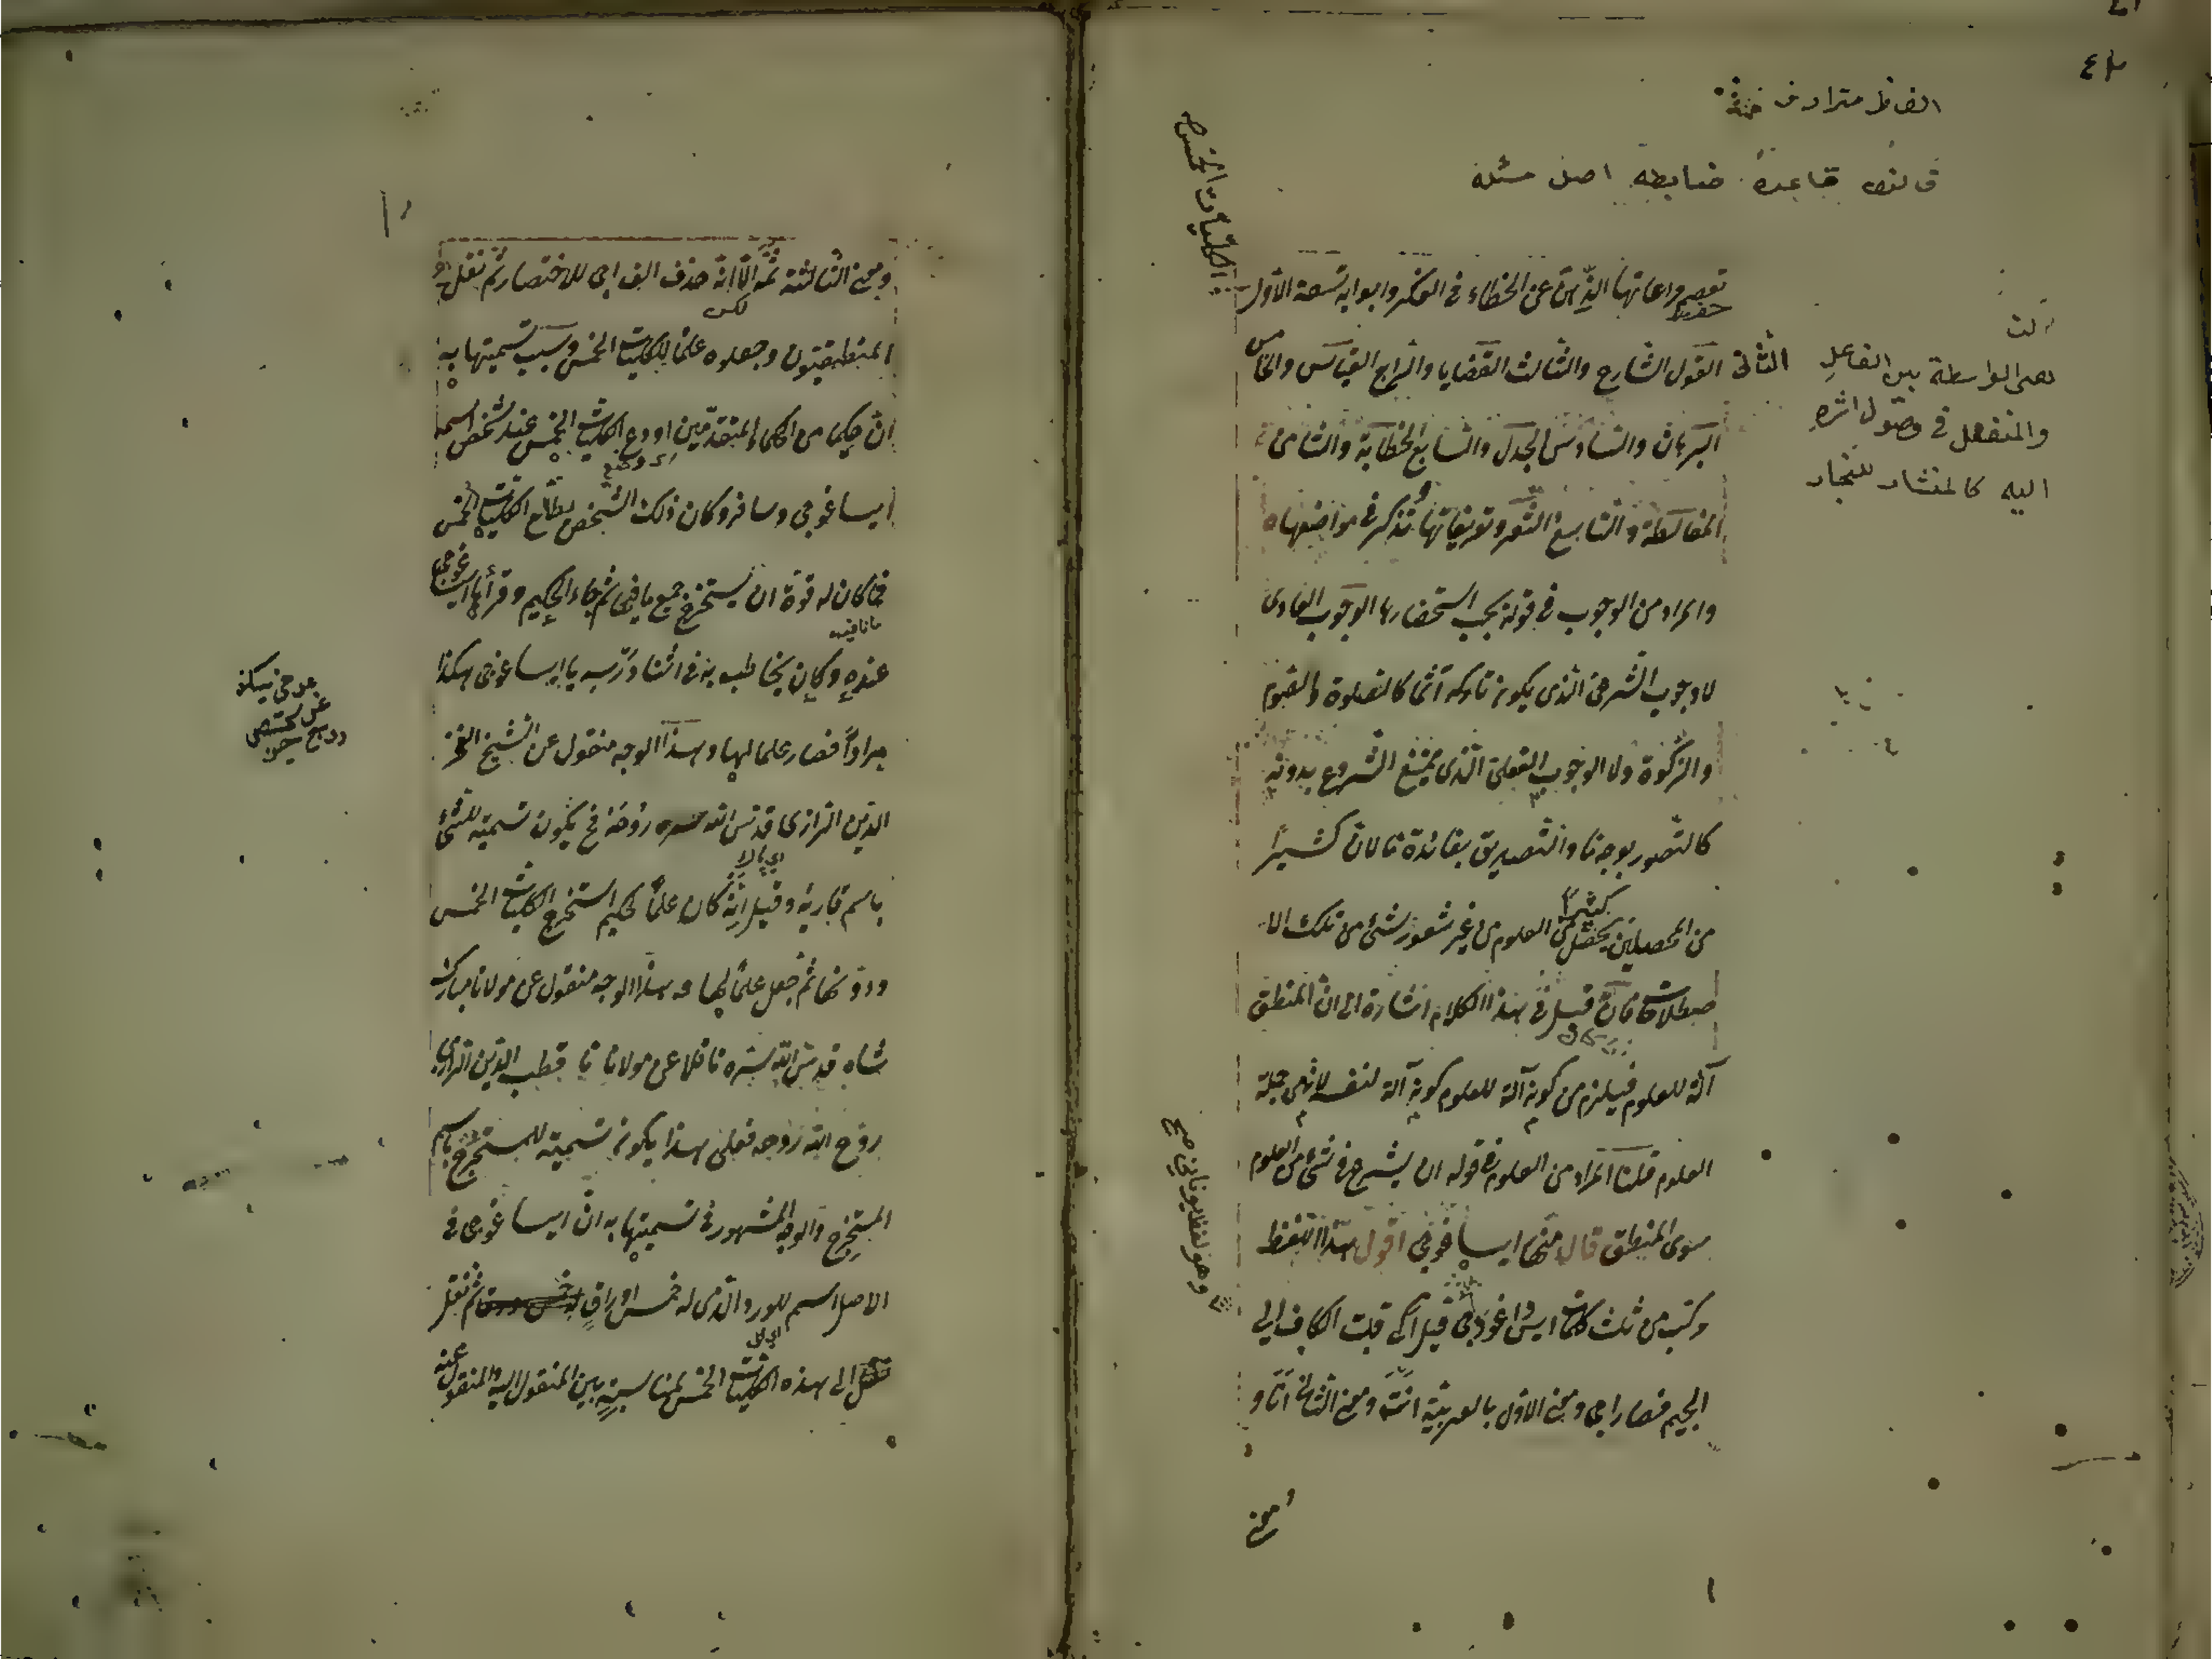 الفاظ مترادف خمسة
قانون قاعدة ضابطه اصل مسئله
تعصم مراعاتها الذهن عن الخطاء فى الفكر وابوابه تسعة الاول
حفظ
الكليات الخمس
الثانى القول الشارح والثالث القضايا والرابع القياس والخامس
البرهان والسادس الجدل والسابع الخطابة والثامن
المغالطة والتاسع الشعر وتعريفاتها تذكر فى مواضعها
والمراد من الوجوب فى قوله يجب استحضارها الوجوب العادى
لا وجوب الشرعى الذى يكون تاركه آثما كالصلوة والصوم
والزكوة ولا الوجوب العقلى الذى يمتنع الشروع بدونه
كالتصور بوجه ما والتصديق بفائدة ما لان كثيرا
من المحصلين يحصل كثيرا من العلوم من غير شعور بشئ من تلك الا
صطلاحات فان قيل فى هذا الكلام اشارة الى ان المنطق
آلة للعلوم فيلزم من كونه آلة للعلوم كونه آلة لنفسه لانه من جملة
العلوم قلنا المراد من العلوم فى قوله ان يشرع فى شئ من العلوم
سوى المنطق قال منها ايساغوجى اقول هذا اللفظ
وهو لفظ يونانى صح
مركب من ثلث كلمات ايس واغو واكى قيل اكى قلبت الكاف الى
الجيم فصار اجى ومعنى الاول بالعربية انت ومعنى الثانى انا و
ومعنى
آلت
هى الواسطة بين الفاعل
والمنفعل فى وصول اثره
اليه كالمنشار للنجار
ومعنى الثالثة ثمه الا انه حذف الف اجى للاختصار ثم نقله
المنطقيون وجعلوه علما للكليات الخمس وسبب تسميتها به
ان حكيما من الحكماء المتقدمين اودع الكليات الخمس عند شخص اسمه
ايساغوجى وسافر وكان ذلك الشخص يطالع الكليات الخمس
فما كان له قوة ان يستخرج جميع ما فيها ثم جاء الحكيم وقرأها ايساغوجى
ما نافيه
عنده وكان يخاطبه به فى اثناء درسه يا ايساغوجى هكذا
مرارا فصار علما لها وهذا الوجه منقول عن الشيخ الفخر
الدين الرازى قدس الله روحه فح يكون تسمية للشئ
باسم قاريه وقيل انه كان علما لحكيم استخرج الكليات الخمس
ودونها ثم جعل علما لها وهذا الوجه منقول عن مولانا مبارك
شاه قدس الله سره ناقلا عن مولانا قطب الدين الرازى
روح الله روحه فعلى هذا يكون تسمية للمستخرج باسم
المستخرج والوجه المشهور فى تسميتها به ان ايساغوجى فى
الاصل اسم للورد الذى له خمس اوراق ثم نقل
الى هذه الكليات الخمس لمناسبة بين المنقول اليه والمنقول عنه